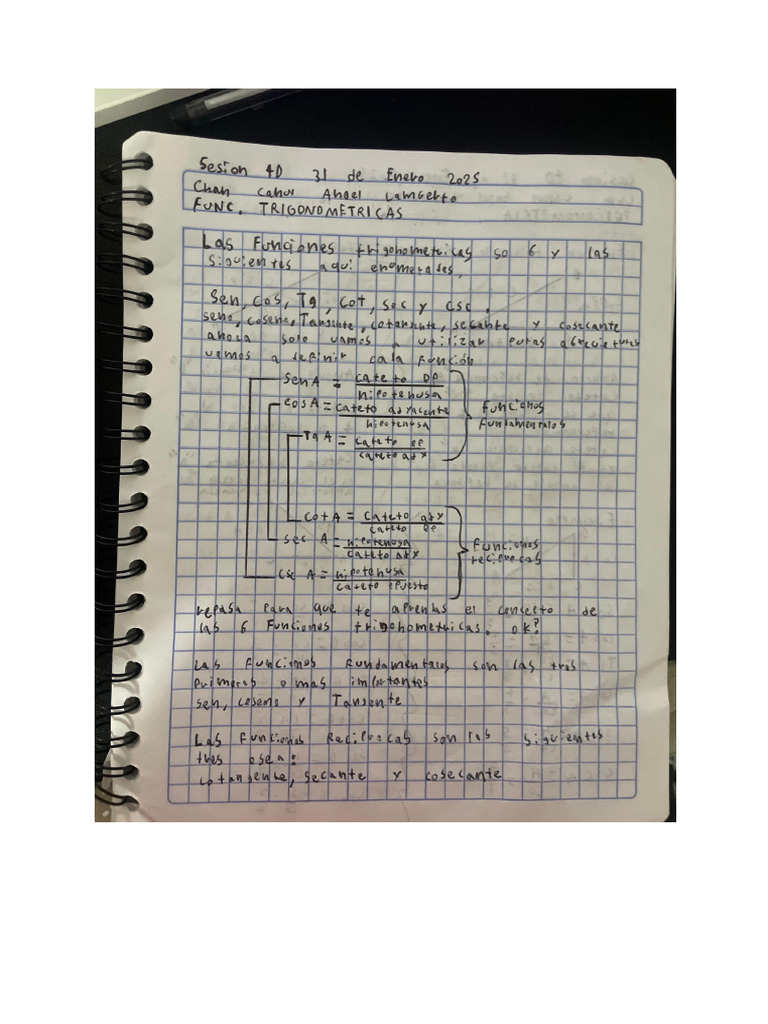 Sesion 40 31 de Enero 2025
Chan Cahui Angel Lamberto
FUNC. TRIGONOMETRICAS
Las Funciones trigonometricas so 6 y las
siguientes aqui enomeradas.
Sen, cos, Tg, Cot, sec y csc.
seno, coseno, Tangente, cotangente, secante y cosecante
ahora solo vamos a utilizar
vamos a definir cada Función
Sen A = cateto OP
hipotenusa
cos A = cateto adyacente
hipotenusa
Funciones
Fundamentales
Tg A = cateto op
cateto adx
Cot A = cateto ady
cateto op
sec A = hipotenusa
cateto adx
Funciones
reciprocas
csc A = hipotenusa
cateto opuesto
repasa para que te aprendas el consecto de
las 6 Funciones trigonometricas. ok?
Las Funciones Fundamentales son las tres
primeras o mas importantes
sen, coseno y Tangente
Las Funciones Reciprocas son las siguientes
tres osea:
cotangente, secante y cosecante